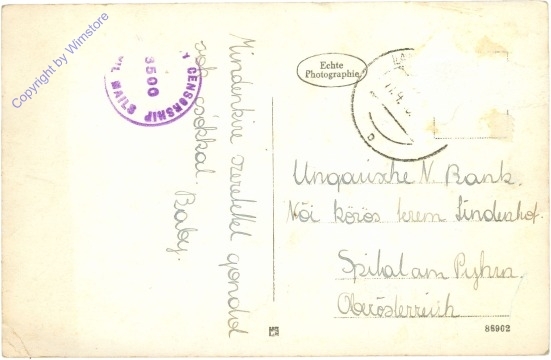 Copyright by Wimstore
CENSORSHIP
3500
MAILS
Echte
Photographie
Mindenkire szeretettel gondol
sok csókkal. Baby.
Ungarische N. Bank.
Női körös terem Lindenhof.
Spital am Pyhrn.
Oberösterreich
86902